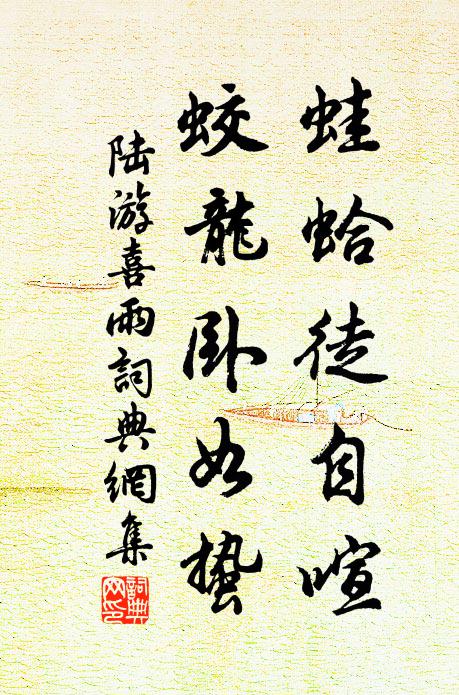 蛙蛤徒自喧
蛟龍臥如蟄
陆游喜雨詞典網集
詞典网印